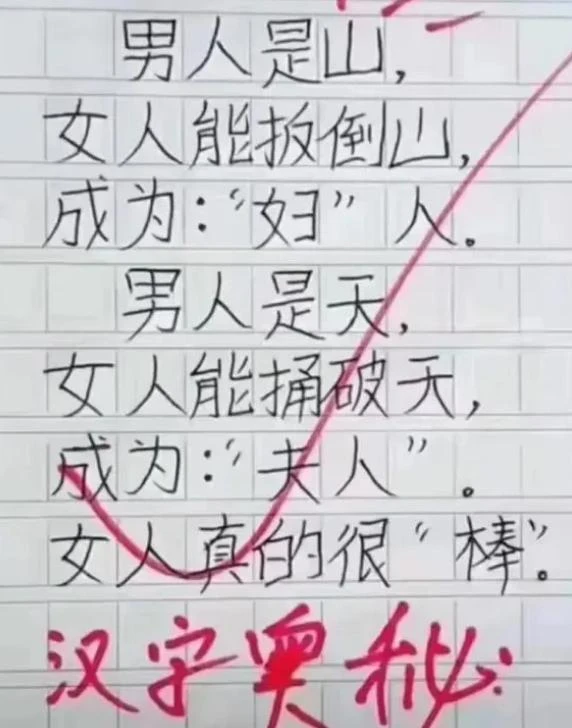 男人是山,
女人能扳倒山,
成为:“妇”人。
男人是天,
女人能捅破天,
成为:“夫人”。
女人真的很“棒”。
汉字奥秘